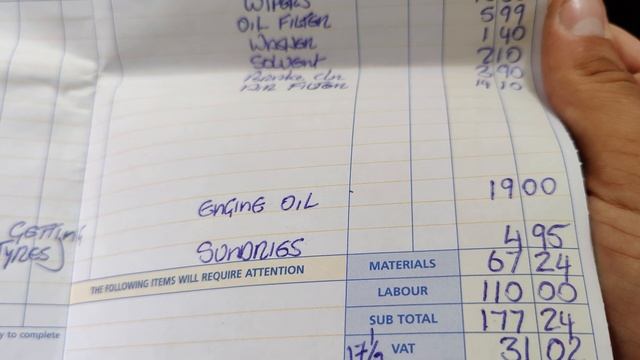 WIPERS
OIL FILTER 5 99
WASHER 1 40
SOLVENT 2 10
2 90
AIR FILTER
ENGINE OIL 19 00
GETTING
TYRES
SUNDRIES 4 95
THE FOLLOWING ITEMS WILL REQUIRE ATTENTION
MATERIALS 67 24
LABOUR 110 00
SUB TOTAL 177 24
y to complete
VAT 31 02